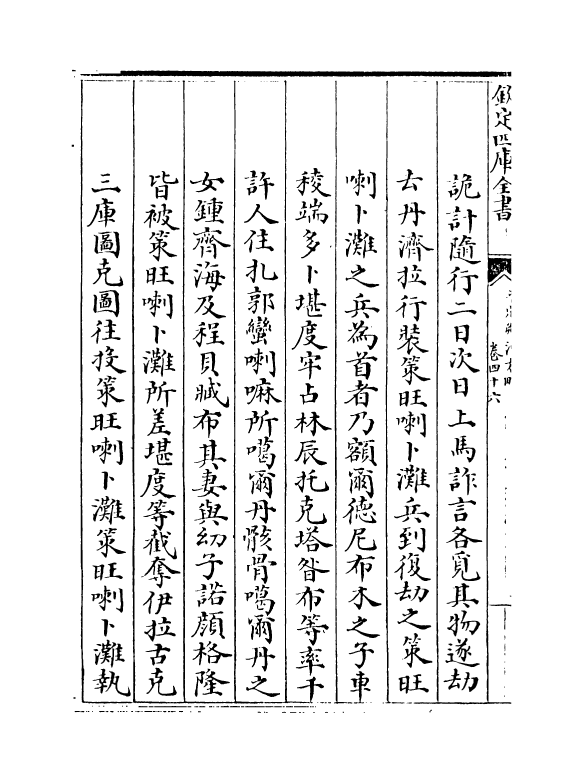 欽定四庫全書
卷四十六
詭計隨行二日次日上馬詐言各覓其物遂劫
去丹濟拉行裝策旺喇卜灘兵到復劫之策旺
喇卜灘之兵為首者乃額爾德尼布木之子車
稜端多卜堪度牢占林辰托克塔昝布等率千
許人住扎郭蠻喇嘛所噶爾丹骸骨噶爾丹之
女鍾齊海及程貝臧布其妻與幼子諾顔格隆
皆被策旺喇卜灘所差堪度等截奪伊拉古克
三庫圖克圖往投策旺喇卜灘策旺喇卜灘執